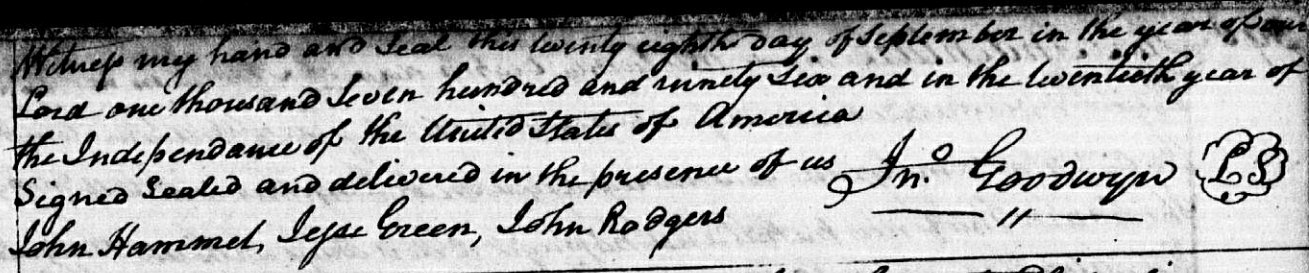 Witness my hand and Seal this twenty eighth day of September in the year of our
Lord one thousand Seven hundred and ninety Six and in the twentieth year of
the Independance of the United States of America
Signed Sealed and delivered in the presence of us Jno. Goodwyn LS
John Hammel, Jesse Green, John Rodgers